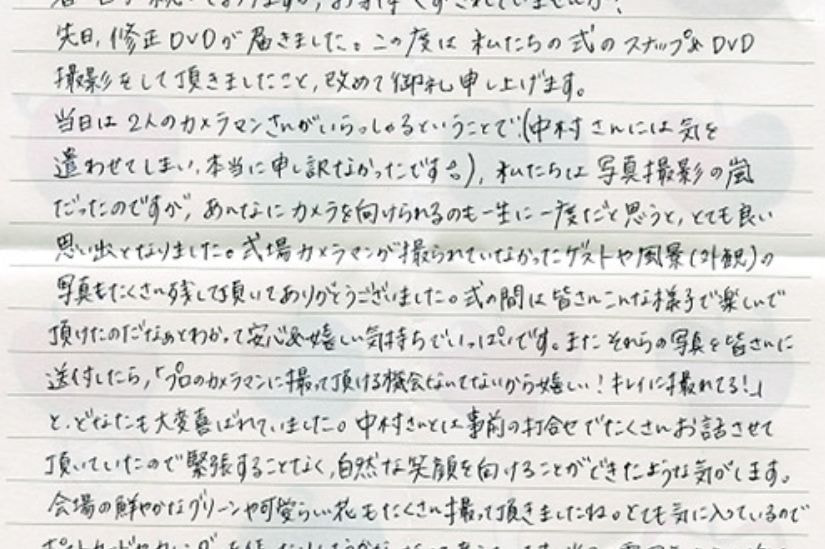 先日、修正DVDが届きました。この度は私たちの式のスナップ&DVD
撮影をして頂きましたこと、改めて御礼申し上げます。
当日は2人のカメラマンさんがいらっしゃるということで(中村さんには気を
遣わせてしまい、本当に申し訳なかったです)、私たちは写真撮影の嵐
だったのですが、あんなにカメラを向けられるのも一生に一度だと思うと、とても良い
思い出となりました。式場カメラマンが撮られていなかったゲストや風景(外観)の
写真もたくさん残して頂いてありがとうございました。式の間は皆さんこんな様子で楽しんで
頂けたのだなぁとわかって安心&嬉しい気持ちでいっぱいです。またそれらの写真を皆さんに
送付したら、「プロのカメラマンに撮って頂ける機会なんてないから嬉しい!キレイに撮れてる!」
と、どなたも大変喜ばれていました。中村さんとは事前の打合せでたくさんお話させて
頂いていたので緊張することなく、自然な笑顔を向けることができたような気がします。
会場の鮮やかなグリーンや可愛らしい花もたくさん撮って頂きましたね。とても気に入っているので